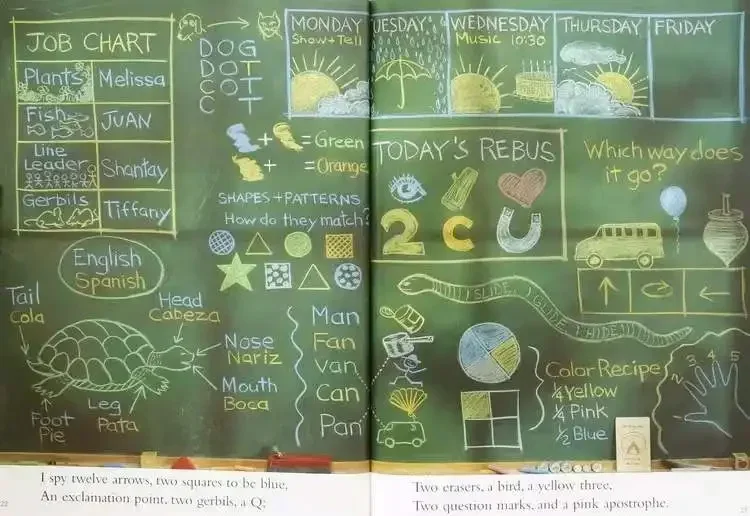 JOB CHART
Plants Melissa
Fish JUAN
Line
Leader Shantay
Gerbils Tiffany
DOG
DOT
COT
C T
MONDAY
Show+Tell
UESDAY
WEDNESDAY
Music 10:30
THURSDAY
FRIDAY
+ = Green
+ = Orange
SHAPES+PATTERNS
How do they match?
TODAY'S REBUS
2 c U
Which way does
it go?
English
Spanish
Tail
Cola
Head
Cabeza
Nose
Nariz
Mouth
Boca
Leg
Pata
Foot
Pie
Man
Fan
Van
Can
Pan
I SLIDE, I GLIDE, I HIDE!!!!
Color Recipe
¼ Yellow
¼ Pink
½ Blue
2 3 4 5
I spy twelve arrows, two squares to be blue,
An exclamation point, two gerbils, a Q;
22
Two erasers, a bird, a yellow three,
Two question marks, and a pink apostrophe.